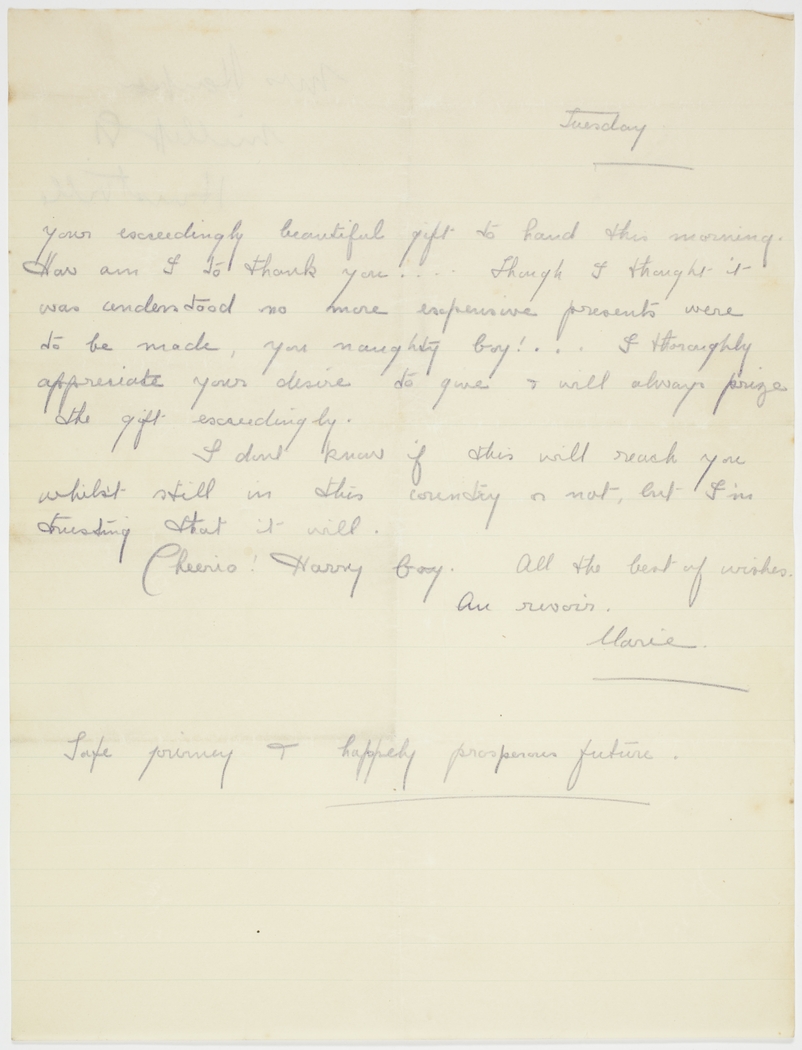 Tuesday
Your exceedingly beautiful gift to hand this morning.
How am I to thank you.... Though I thought it
was understood no more expensive presents were
to be made, you naughty boy!... I thoroughly
appreciate your desire to give & will always prize
the gift exceedingly.
I dont know if this will reach you
whilst still in this country or not, but I'm
trusting that it will.
Cheerio! Harry boy. All the best of wishes.
Au revoir.
Marie.
Safe journey & happily prosperous future.